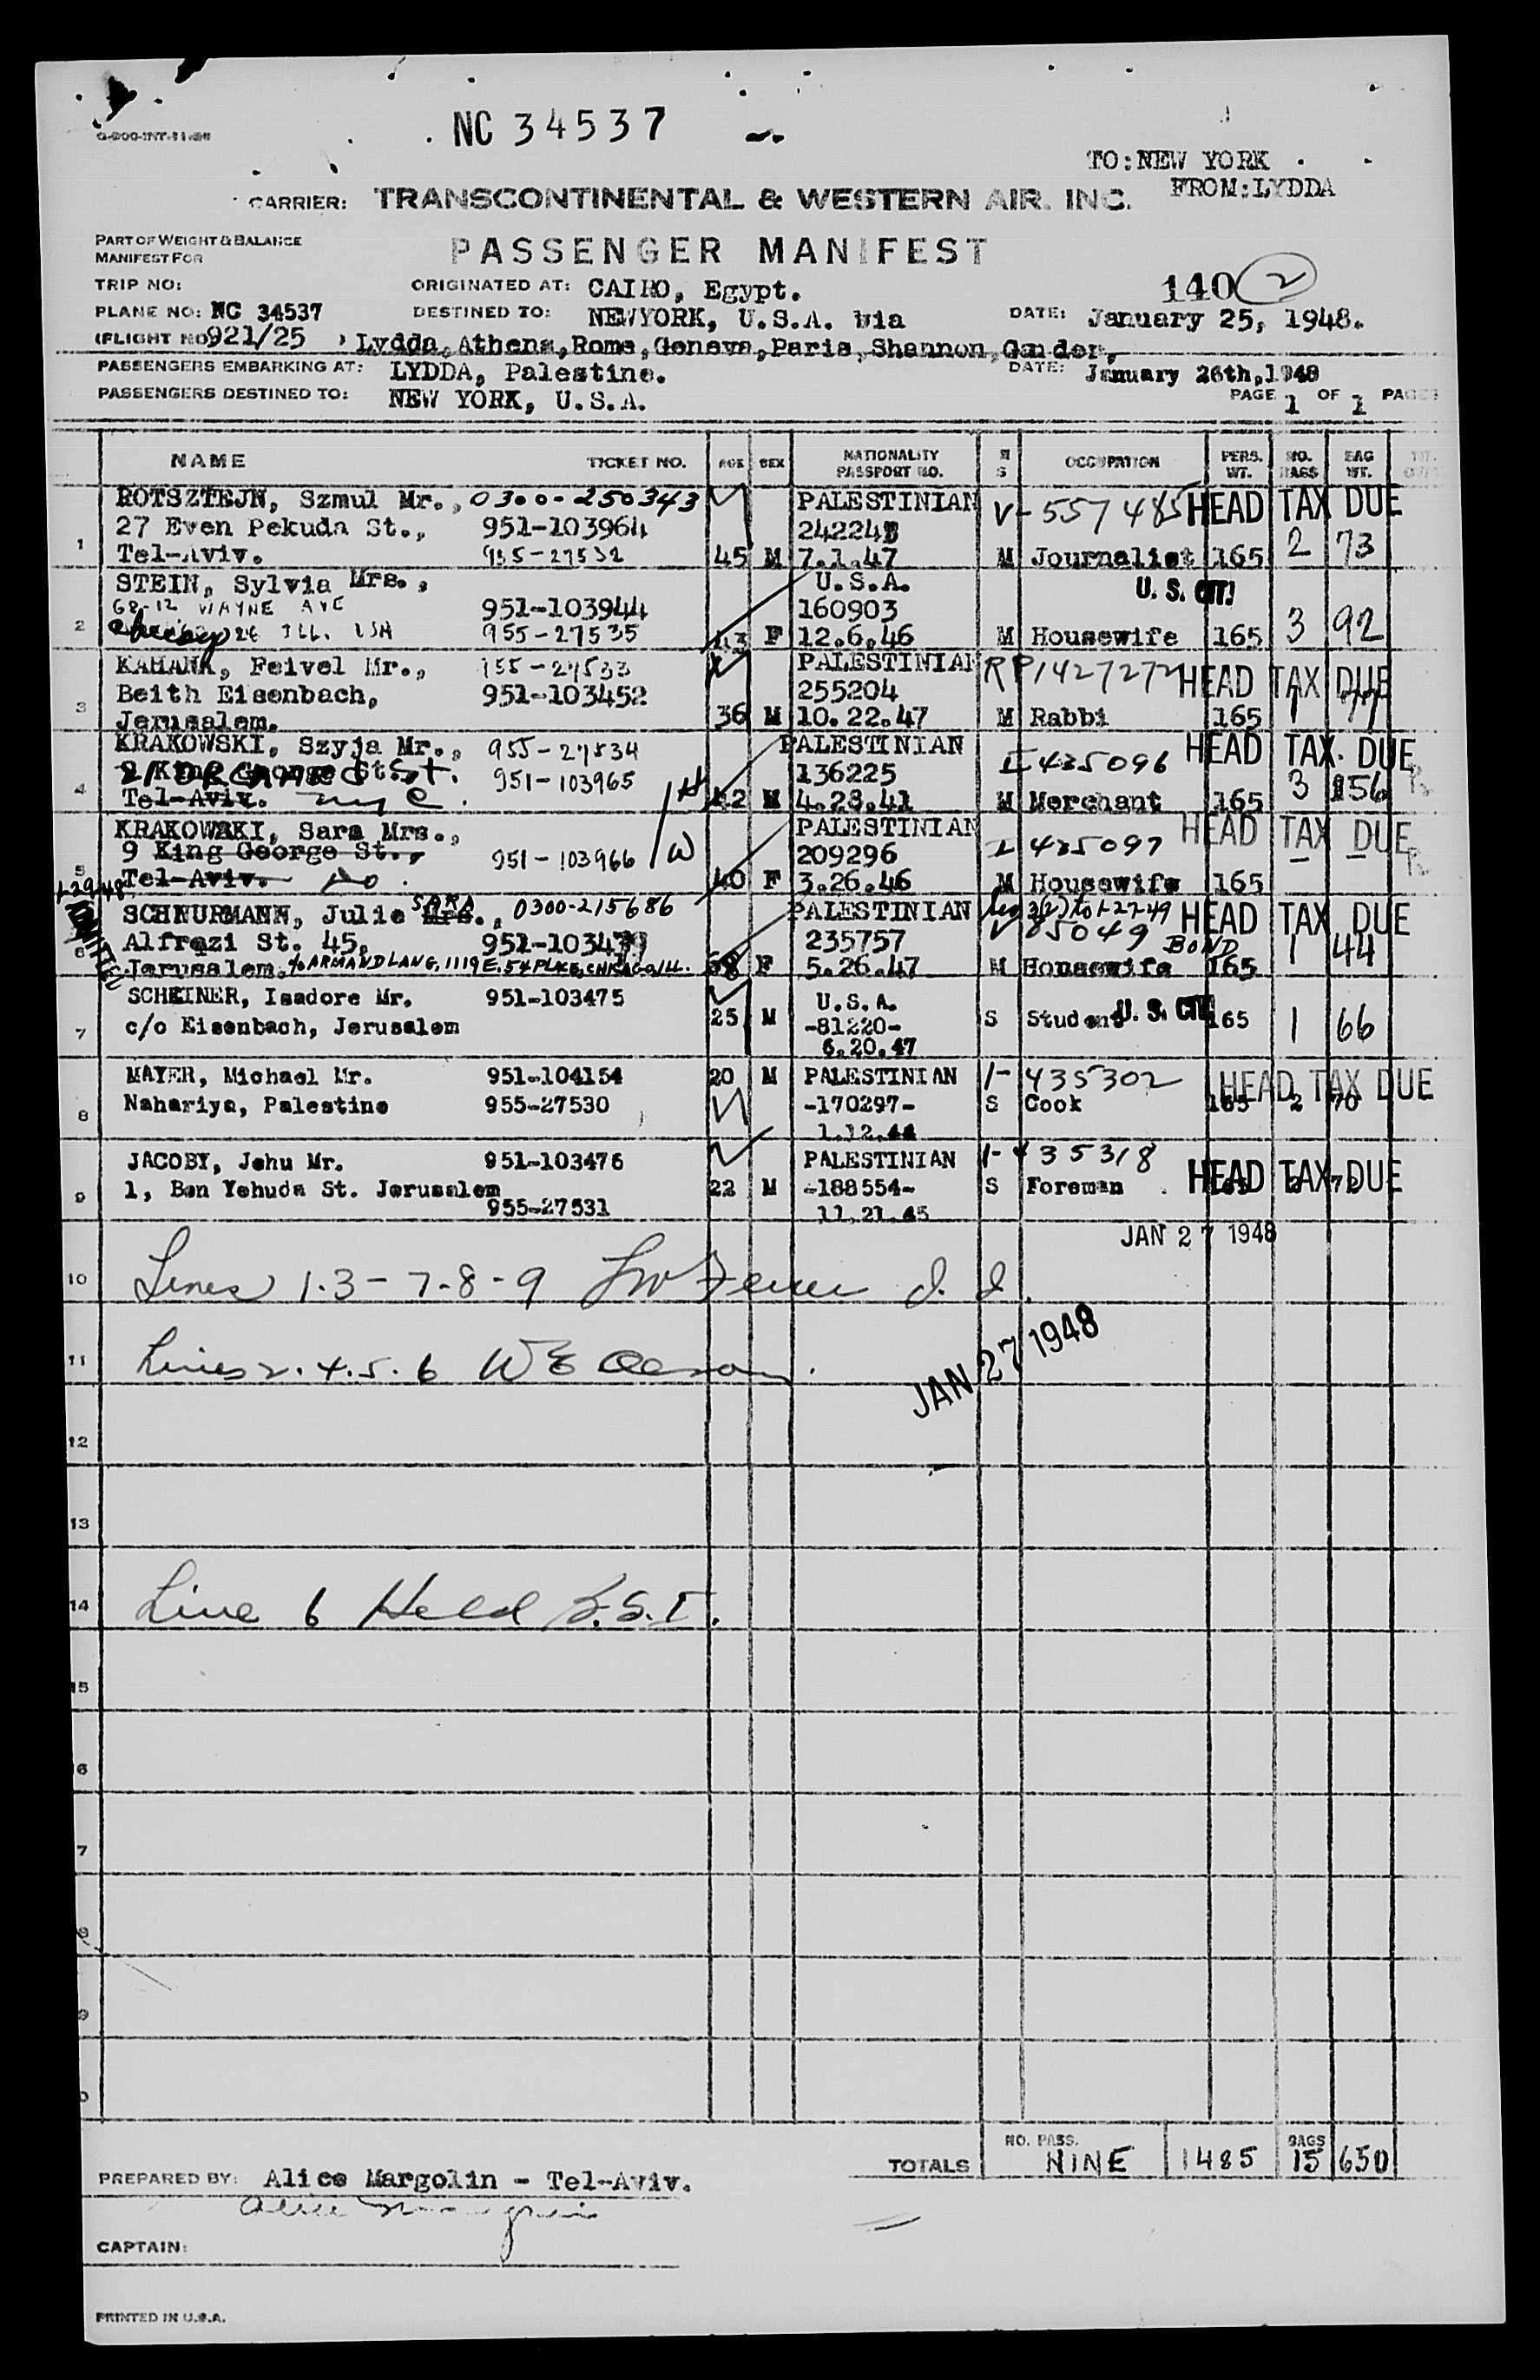 NC 34537
TO:NEW YORK
FROM:LYDDA
CARRIER: TRANSCONTINENTAL & WESTERN AIR. INC.
PART OF WEIGHT & BALANCE
MANIFEST FOR
PASSENGER MANIFEST
TRIP NO:
ORIGINATED AT: CAIRO, Egypt.
140 2
PLANE NO: NC 34537
DESTINED TO: NEWYORK, U.S.A. via
DATE: January 25, 1948.
(FLIGHT NO 921/25 ) Lydda,Athens,Rome,Geneva,Paris,Shannon,Gander,
PASSENGERS EMBARKING AT: LYDDA, Palestine.
DATE: January 26th,1948
PASSENGERS DESTINED TO: NEW YORK, U.S.A.
PAGE 1 OF 1 PAGES
NAME TICKET NO. AGE SEX NATIONALITY PASSPORT NO. M S OCCUPATION PERS. WT. NO. BAGS BAG WT.
ROTSZTEJN, Szmul Mr., 0300-250343 PALESTINIAN V-557485 HEAD TAX DUE
27 Even Pekuda St., 951-103964 242243
1 Tel-Aviv. 955-27532 45 M 7.1.47 M Journalist 165 2 73
STEIN, Sylvia Mrs., U.S.A. U. S. CIT.
68-12 WAYNE AVE 951-103944 160903
2 Chicago 26 ILL. USA 955-27535 43 F 12.6.46 M Housewife 165 3 92
KAHANA, Feivel Mr., 955-27533 PALESTINIAN RP1427272 HEAD TAX DUE
Beith Eisenbach, 951-103452 255204
3 Jerusalem. 36 M 10.22.47 M Rabbi 165 1 77
KRAKOWSKI, Szyja Mr., 955-27534 PALESTINIAN I 435096 HEAD TAX DUE
9 King George St., 21 ORCHARD St. 951-103965 136225
4 Tel-Aviv. NYC. 42 M 4.23.41 M Merchant 165 3 156
KRAKOWSKI, Sara Mrs., PALESTINIAN I 435097 HEAD TAX DUE
9 King George St., 951-103966 209296
5 Tel-Aviv. Do. 40 F 3.26.46 M Housewife 165 - -
1-29-48 ADMITTED
SCHNURMANN, Julie SARA Mrs., 0300-215686 PALESTINIAN 3(2) to 1-27-49 HEAD TAX DUE
Alfrazi St. 45, 951-103479 235757 V 85049 BOND
6 Jerusalem. c/o ARMAND LANG, 1119 E. 54 PLACE, CHICAGO, ILL. 68 F 5.26.47 M Housewife 165 1 44
SCHEINER, Isadore Mr. 951-103475 U.S.A.
7 c/o Eisenbach, Jerusalem 25 M -81220- S Student U. S. CIT. 165 1 66
6.20.47
MAYER, Michael Mr. 951-104154 20 M PALESTINIAN I-435302 HEAD TAX DUE
8 Nahariya, Palestine 955-27530 -170297- S Cook 165 2 70
1.12.44
JACOBY, Jehu Mr. 951-103476 PALESTINIAN I-435318
9 1, Ben Yehuda St. Jerusalem 22 M -188554- S Foreman 165 HEAD TAX DUE
955-27531 11.21.45
JAN 27 1948
10 Lines 1.3-7-8-9
11 Lines 2.4.5.6
JAN 27 1948
12
13
14 Line 6 Held B.S.I.
15
6
7
8
9
0
TOTALS NO. PASS. NINE 1485 BAGS 15 650
PREPARED BY: Alice Margolin - Tel-Aviv.
Alice Margolin
CAPTAIN:
PRINTED IN U.S.A.